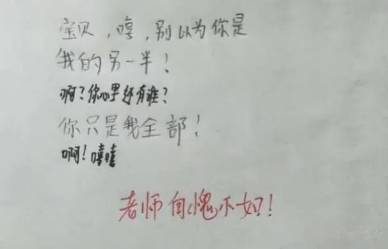 宝贝，哼，别以为你是
我的另一半！
啊？你心里还有谁？
你只是我全部！
啊！嘻嘻
老师自愧不如！